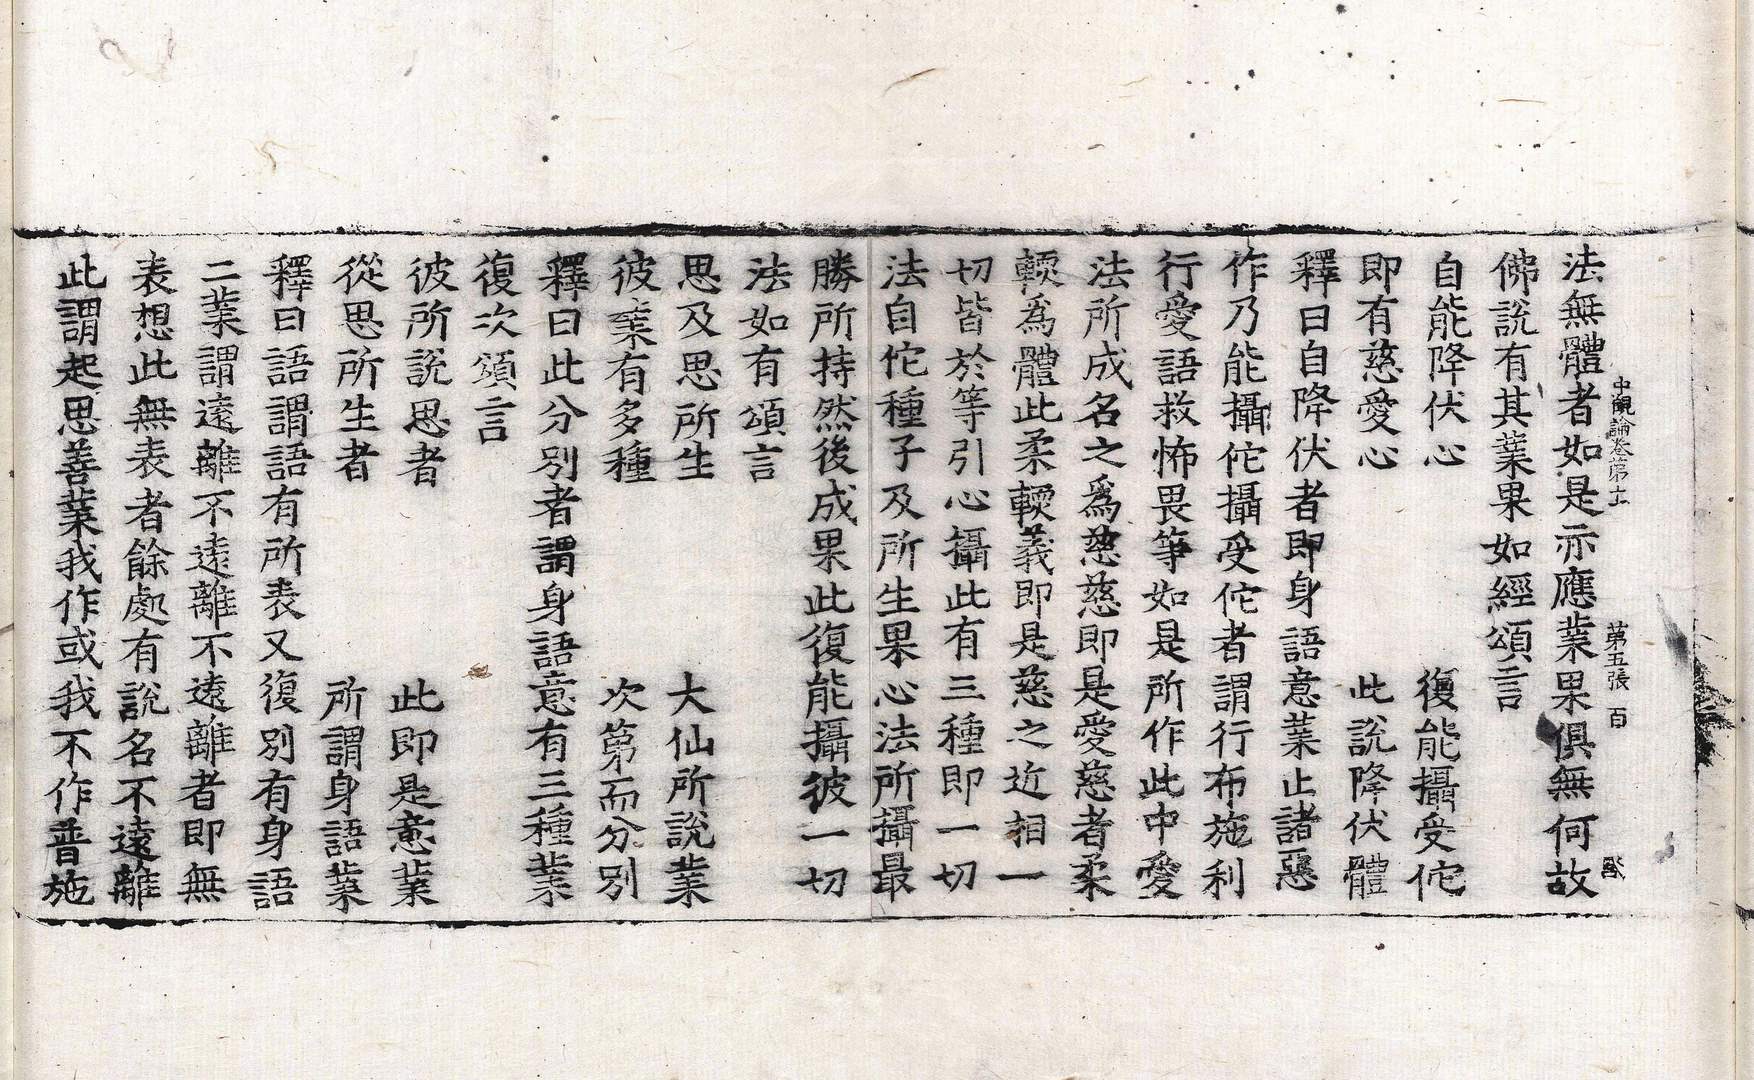 中觀論卷第十一 第五張 百
法無體者如是亦應業果俱無何故
佛說有其業果如經頌言
自能降伏心 復能攝受佗
即有慈愛心 此說降伏體
釋曰自降伏者即身語意業止諸惡
作乃能攝佗攝受佗者謂行布施利
行愛語救怖畏等如是所作此中愛
法所成名之爲慈慈即是愛慈者柔
輭爲體此柔輭義即是慈之近相一
切皆於等引心攝此有三種即一切
法自佗種子及所生果心法所攝最
勝所持然後成果此復能攝彼一切
法如有頌言
思及思所生 大仙所說業
彼業有多種 次第而分別
釋曰此分別者謂身語意有三種業
復次頌言
彼所說思者 此即是意業
從思所生者 所謂身語業
釋曰語謂語有所表又復別有身語
二業謂遠離不遠離不遠離者即無
表想此無表者餘處有說名不遠離
此謂起思善業我作或我不作普施